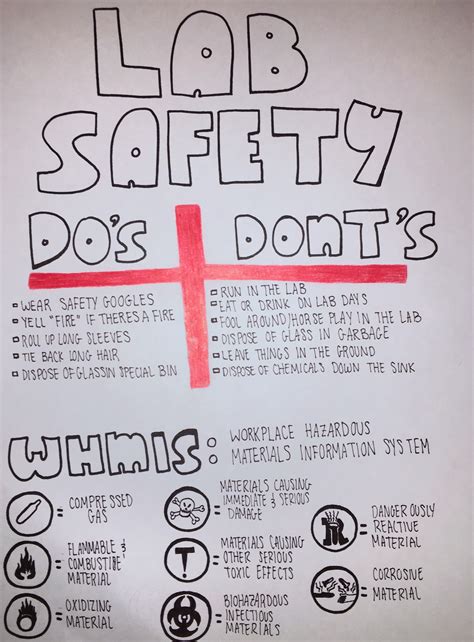 LAB
SAFETY
DO'S
DONT'S
WEAR SAFETY GOOGLES
YELL "FIRE" IF THERES A FIRE
ROLL UP LONG SLEEVES
TIE BACK LONG HAIR
DISPOSE OF GLASS IN SPECIAL BIN
RUN IN THE LAB
EAT OR DRINK ON LAB DAYS
FOOL AROUND/HORSE PLAY IN THE LAB
DISPOSE OF GLASS IN GARBAGE
LEAVE THINGS IN THE GROUND
DISPOSE OF CHEMICALS DOWN THE SINK
WHMIS: WORKPLACE HAZARDOUS
MATERIALS INFORMATION SYSTEM
= COMPRESSED
GAS
= FLAMMABLE &
COMBUSTIBLE
MATERIAL
= OXIDIZING
MATERIAL
= MATERIALS CAUSING
IMMEDIATE & SERIOUS
DAMAGE
= MATERIALS CAUSING
OTHER SERIOUS
TOXIC EFFECTS
= BIOHAZARDOUS
INFECTIOUS
MATERIALS
= DANGEROUSLY
REACTIVE
MATERIAL
= CORROSIVE
MATERIAL